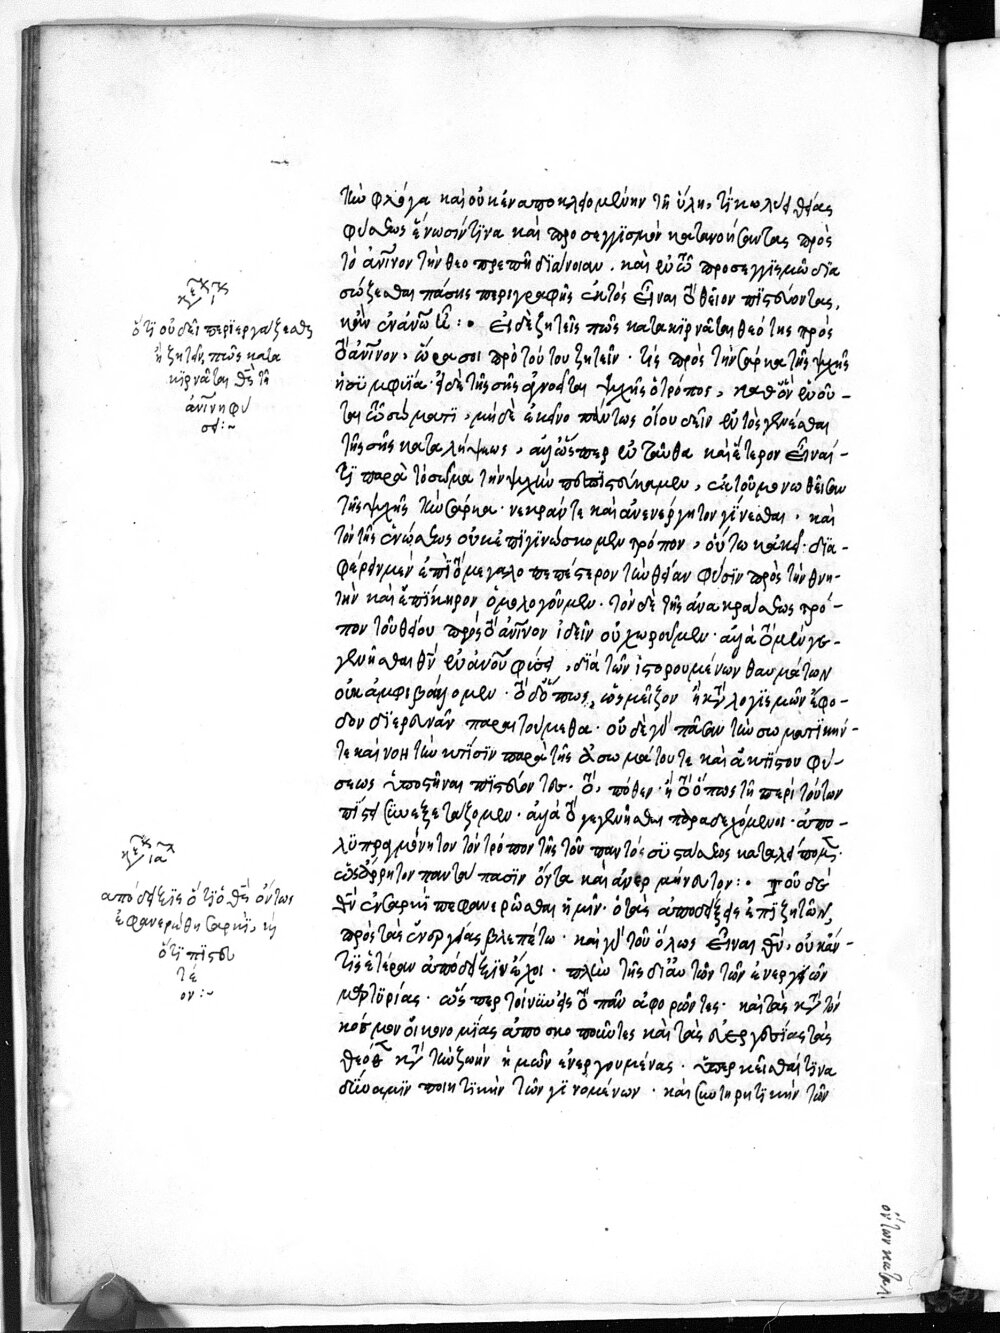 τὴν φλόγα καὶ οὐκ ἐναποκλειομένην τῇ ὕλῃ, τί κωλύει θείας
φύσεως ἕνωσίν τινα καὶ προσεγγισμὸν κατανοήσαντας πρὸς
τὸ ἀνῖνον τὴν θεοπρεπῆ διάνοιαν. καὶ ἐν τῶ προσεγγισμῶ δια
σώζεσθαι πάσης περιγραφῆς ἐκτὸς εἶναι τὸ θεῖον πιστεύοντας,
κἂν ἐν ἀνῶ ἦ :· Εἰ δὲ ζητεῖς πῶς κατακιρνᾶται θεότης πρὸς
τὸ ἀνῖνον, ὥρα σοι πρὸ τούτου ζητεῖν· τίς πρὸς τὴν σάρκα τῆς ψυχῆς
ἡ συμφυΐα· εἰ δὲ τῆς σῆς ἀγνοεῖται ψυχῆς ὁ τρόπος, καθ' ὃν ἑνοῦ-
ται τῶ σώματι, μηδὲ ἐκεῖνο πάντως οἴου δεῖν ἐντὸς γενέσθαι
τῆς σῆς καταλήψεως, ἀλλ' ὥσπερ ἐνταῦθα καὶ ἕτερον εἶναί-
τι παρὰ τὸ σῶμα τὴν ψυχὴν πεπιστεύκαμεν,
τῆς ψυχῆς τὴν σάρκα· νεκράν τε καὶ ἀνενέργητον γίνεσθαι· καὶ
τὸν τῆς ἑνώσεως οὐκ ἐπιγινώσκομεν τρόπον, οὕτω κἀκεῖ· δια-
φέρειν μὲν ἐπὶ τὸ μεγαλοπρεπέστερον τὴν θείαν φύσιν πρὸς τὴν θνη-
τὴν καὶ ἐπίκηρον ὁμολογοῦμεν· τὸν δὲ τῆς ἀνακράσεως τρό-
πον τοῦ θείου πρὸς τὸ ἀνῖνον ἰδεῖν οὐ χωροῦμεν· ἀλλὰ τὸ μὲν γε-
γενῆσθαι θν ἐν ἀνου φύσει, διὰ τῶν ἱστορουμένων θαυμάτων
οὐκ ἀμφιβάλλομεν· τὸ δὲ ὅπως, ὡς μεῖζον ἢ κτ λογισμῶν ἔφο-
δον διερευνᾶν παραιτούμεθα· οὐδὲ γὰρ πᾶσαν τὴν σωματικήν-
τε καὶ νοητὴν κτίσιν παρὰ τῆς ἀσωμάτου τε καὶ ἀκτίστου φύ-
σεως ὑποστῆναι πιστεύοντες· τὸ, πόθεν· ἢ τὸ ὅπως τῇ περὶ τούτων
πίστει συνεξετάζομεν· ἀλλὰ τὸ γεγενῆσθαι παραδεχόμενοι· ἀπο-
λυπραγμόνητον τὸν τρόπον τῆς τοῦ παντὸς συστάσεως καταλείπομεν·
ὡς ἄρρητον παντάπασιν ὄντα καὶ ἀνερμήνευτον :· Τοῦ δὲ
θν ἐν σαρκὶ πεφανερῶσθαι ἡμῖν· ὁ τὰς ἀποδείξεις ἐπιζητῶν,
πρὸς τὰς ἐνεργείας βλεπέτω· καὶ γὰρ τοῦ ὅλως εἶναι θν, οὐκ ἄν-
τις ἑτέραν ἀπόδειξιν ἔχοι· πλὴν τῆς δι' αὐτῶν τῶν ἐνεργειῶν
μαρτυρίας· ὥσπερ τοίνυν εἰς τὸ πᾶν ἀφορῶντες· καὶ τὰς κτ τὸν
κόσμον οἰκονομίας ἀποσκοποῦντες καὶ τὰς εὐεργεσίας τὰς
θεόθεν κτ τὴν ζωὴν ἡμῶν ἐνεργουμένας· ὑπερκεῖσθαί τινα
δύναμιν ποιητικὴν τῶν γινομένων· καὶ σωτηρητικὴν τῶν
ὅτι οὐ δεῖ περιεργάζεσθαι
ἢ ζητεῖν, πῶς κατα
κιρνᾶται θς τῇ
ἀνίνη φύ
σει :~
ἀπόδειξις ὅτι ὁ θς ὄντως
ἐφανερώθη σαρκί, καὶ
ὅτι πιστευ
τέ
ον :~